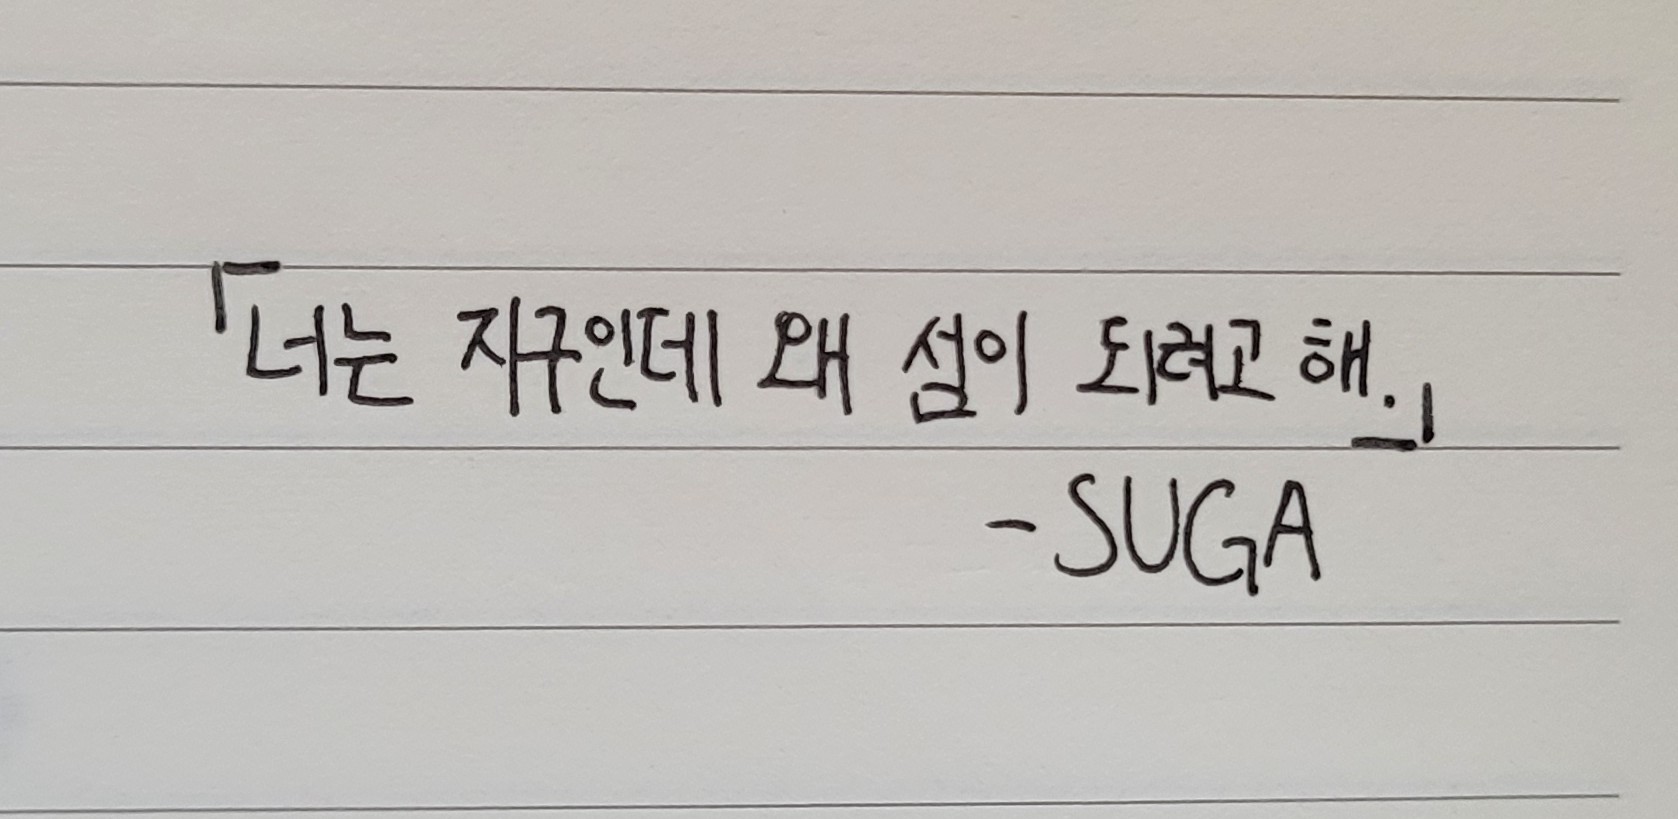 「너는 지구인데 왜 섬이 되려고 해.」
-SUGA